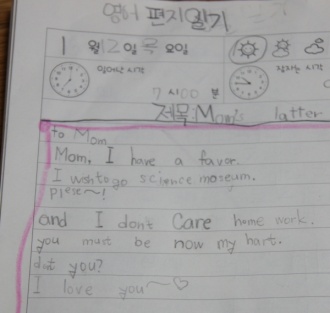 영어 편지 일기
1 월 12 일 목 요일
일어난 시각
잠자는 시각
7 시 00 분
제목: Mom's latter
to Mom
Mom, I have a favor.
I wish to go science moseum.
plese~!
and I don't Care home work.
you must be now my hart.
dint you?
I love you~♡